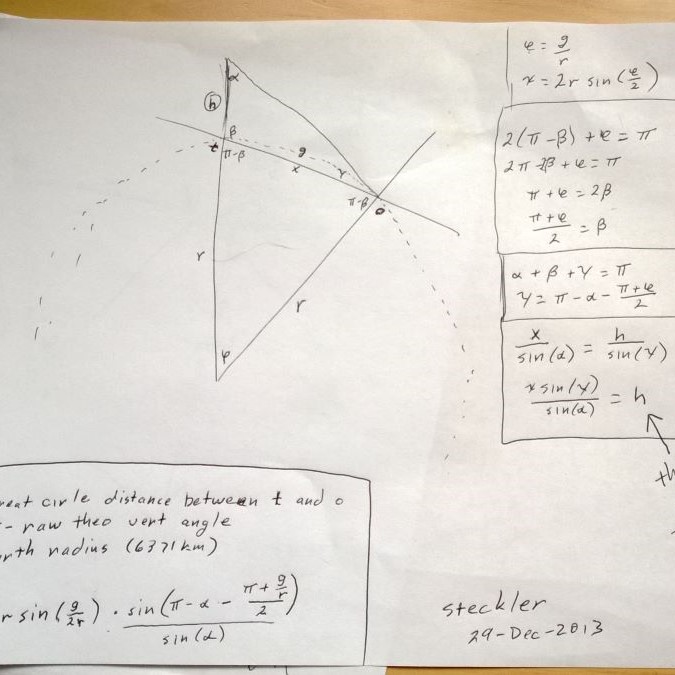 α
h
β
t
π-β
g
x
γ
π-β
o
r
r
φ
φ = g/r
x = 2r sin(φ/2)
2(π-β) + φ = π
2π-2β + φ = π
π + φ = 2β
(π+φ)/2 = β
α + β + γ = π
γ = π - α - (π+φ)/2
x/sin(α) = h/sin(γ)
x sin(γ)/sin(α) = h
reat cirle distance between t and o
- raw theo vert angle
rth radius (6371km)
r sin(g/2r) · sin(π-α-(π+g/r)/2)/sin(α)
steckler
29-Dec-2013